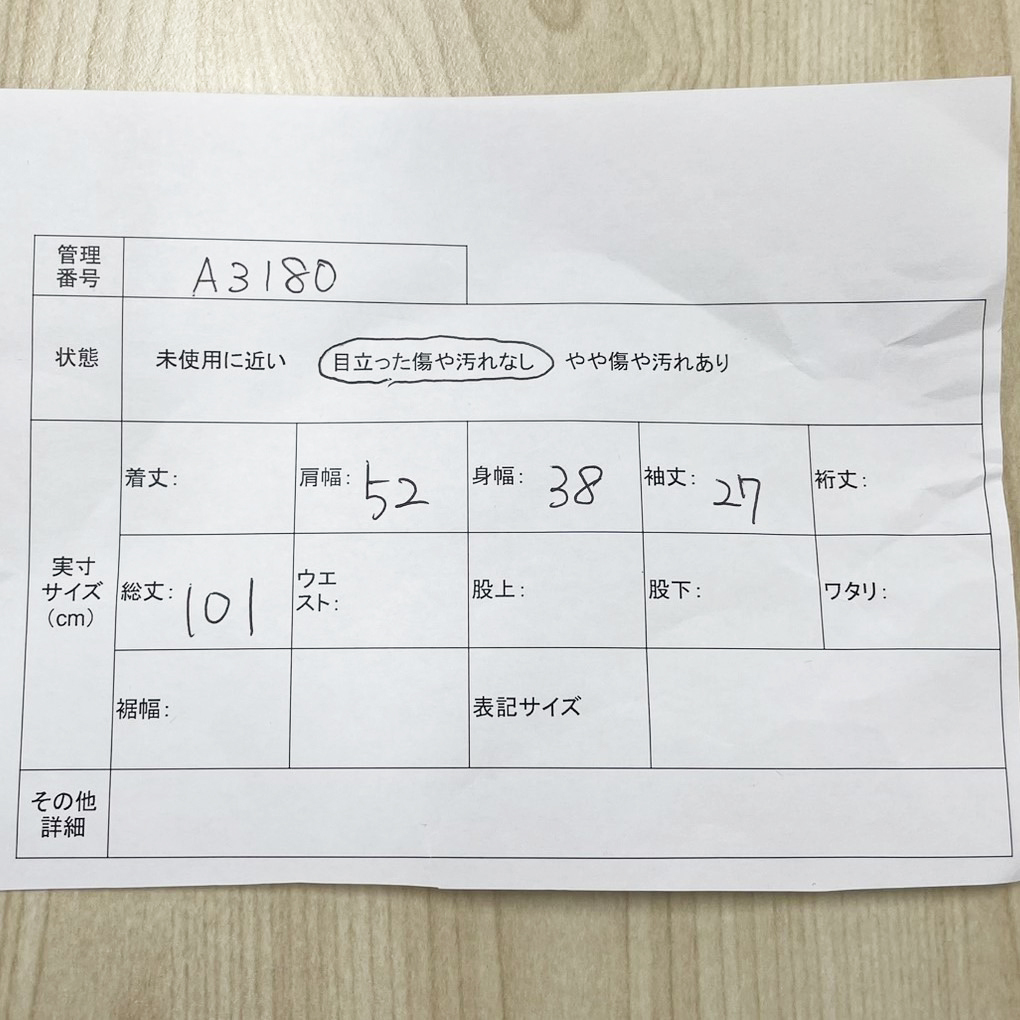 管理
番号
A3180
状態
未使用に近い 目立った傷や汚れなし やや傷や汚れあり
実寸
サイズ
(cm)
着丈:
肩幅: 52
身幅: 38
袖丈: 27
裄丈:
総丈: 101
ウエ
スト:
股上:
股下:
ワタリ:
裾幅:
表記サイズ
その他
詳細